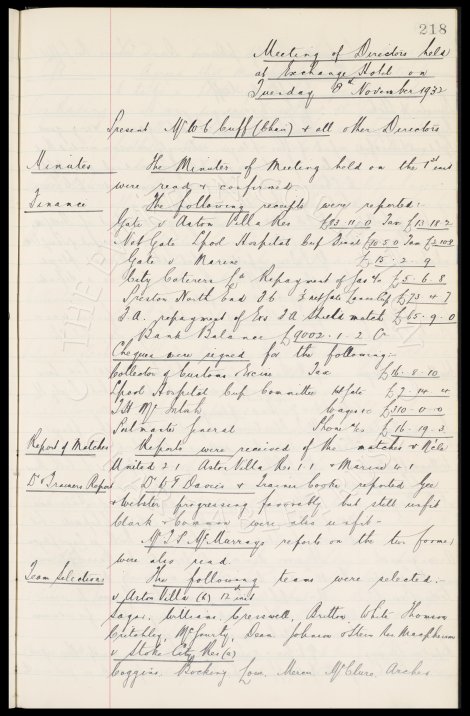 218
Meeting of Directors held
at Exchange Hotel on
Tuesday 8th November 1932
Present Mr W C Cuff (Chair) & all other Directors
Minutes The Minutes of Meeting held on the 1st inst
were read & confirmed.
Finance The following receipts were reported:-
Gate v Aston Villa Res £83.11.0 Tax £13.18.2
Net Gate Lpool Hospital Cup Final Tax
Gate v Marine £13.2.9
City Caterers Co Repayment of Gas a/c £5.6.8
Preston North End F.C. £73.4.7
F.A. repayment of Exs F A Shield match £65.9.0
Bank Balance £9002.1.2 Cr
Cheques were signed for the following:-
Collector of Customs & Excise Tax £16.8.10
Lpool Hospital Cup Committee Gate £7.14.4
T H McIntosh Wages &c £310.0.0
Postmaster General Phone a/c £16.19.3
Report of Matches Reports were received of the matches v N'cle
United 2.1 Aston Villa Res 1.1 & Marine 4.1
Dr & Trainers Report Dr D T Davies & Trainer Cooke reported Gee
& Webster progressing favorably but still unfit
Clark & Common were also unfit-
Mr T S McMurrays reports on the two former
were also read.
Team Selections The following teams were selected:-
v Aston Villa (h) 12th inst
Sagar, Williams, Cresswell, Britton, White Thomson
Critchley, McGourty, Dean Johnson & Stein Res
v Stoke City Res (a)
Coggins, Bocking Lowe, Mercer McClure, Archer